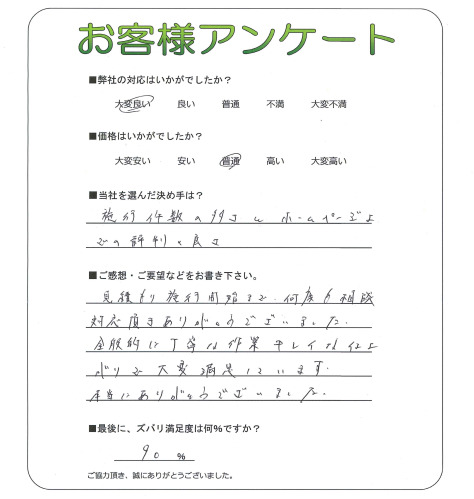 お客様アンケート
■弊社の対応はいかがでしたか？
大変良い 良い 普通 不満 大変不満
■価格はいかがでしたか？
大変安い 安い 普通 高い 大変高い
■当社を選んだ決め手は？
施行件数の多さと ホームページ上
での評判の良さ
■ご感想・ご要望などをお書き下さい。
見積もり施行開始まで、何度も相談
対応頂きありがとうございました。
全般的に丁寧な作業 キレイな仕上
がりで大変満足しています。
本当にありがとうございました。
■最後に、ズバリ満足度は何%ですか？
90 %
ご協力頂き、誠にありがとうございました。